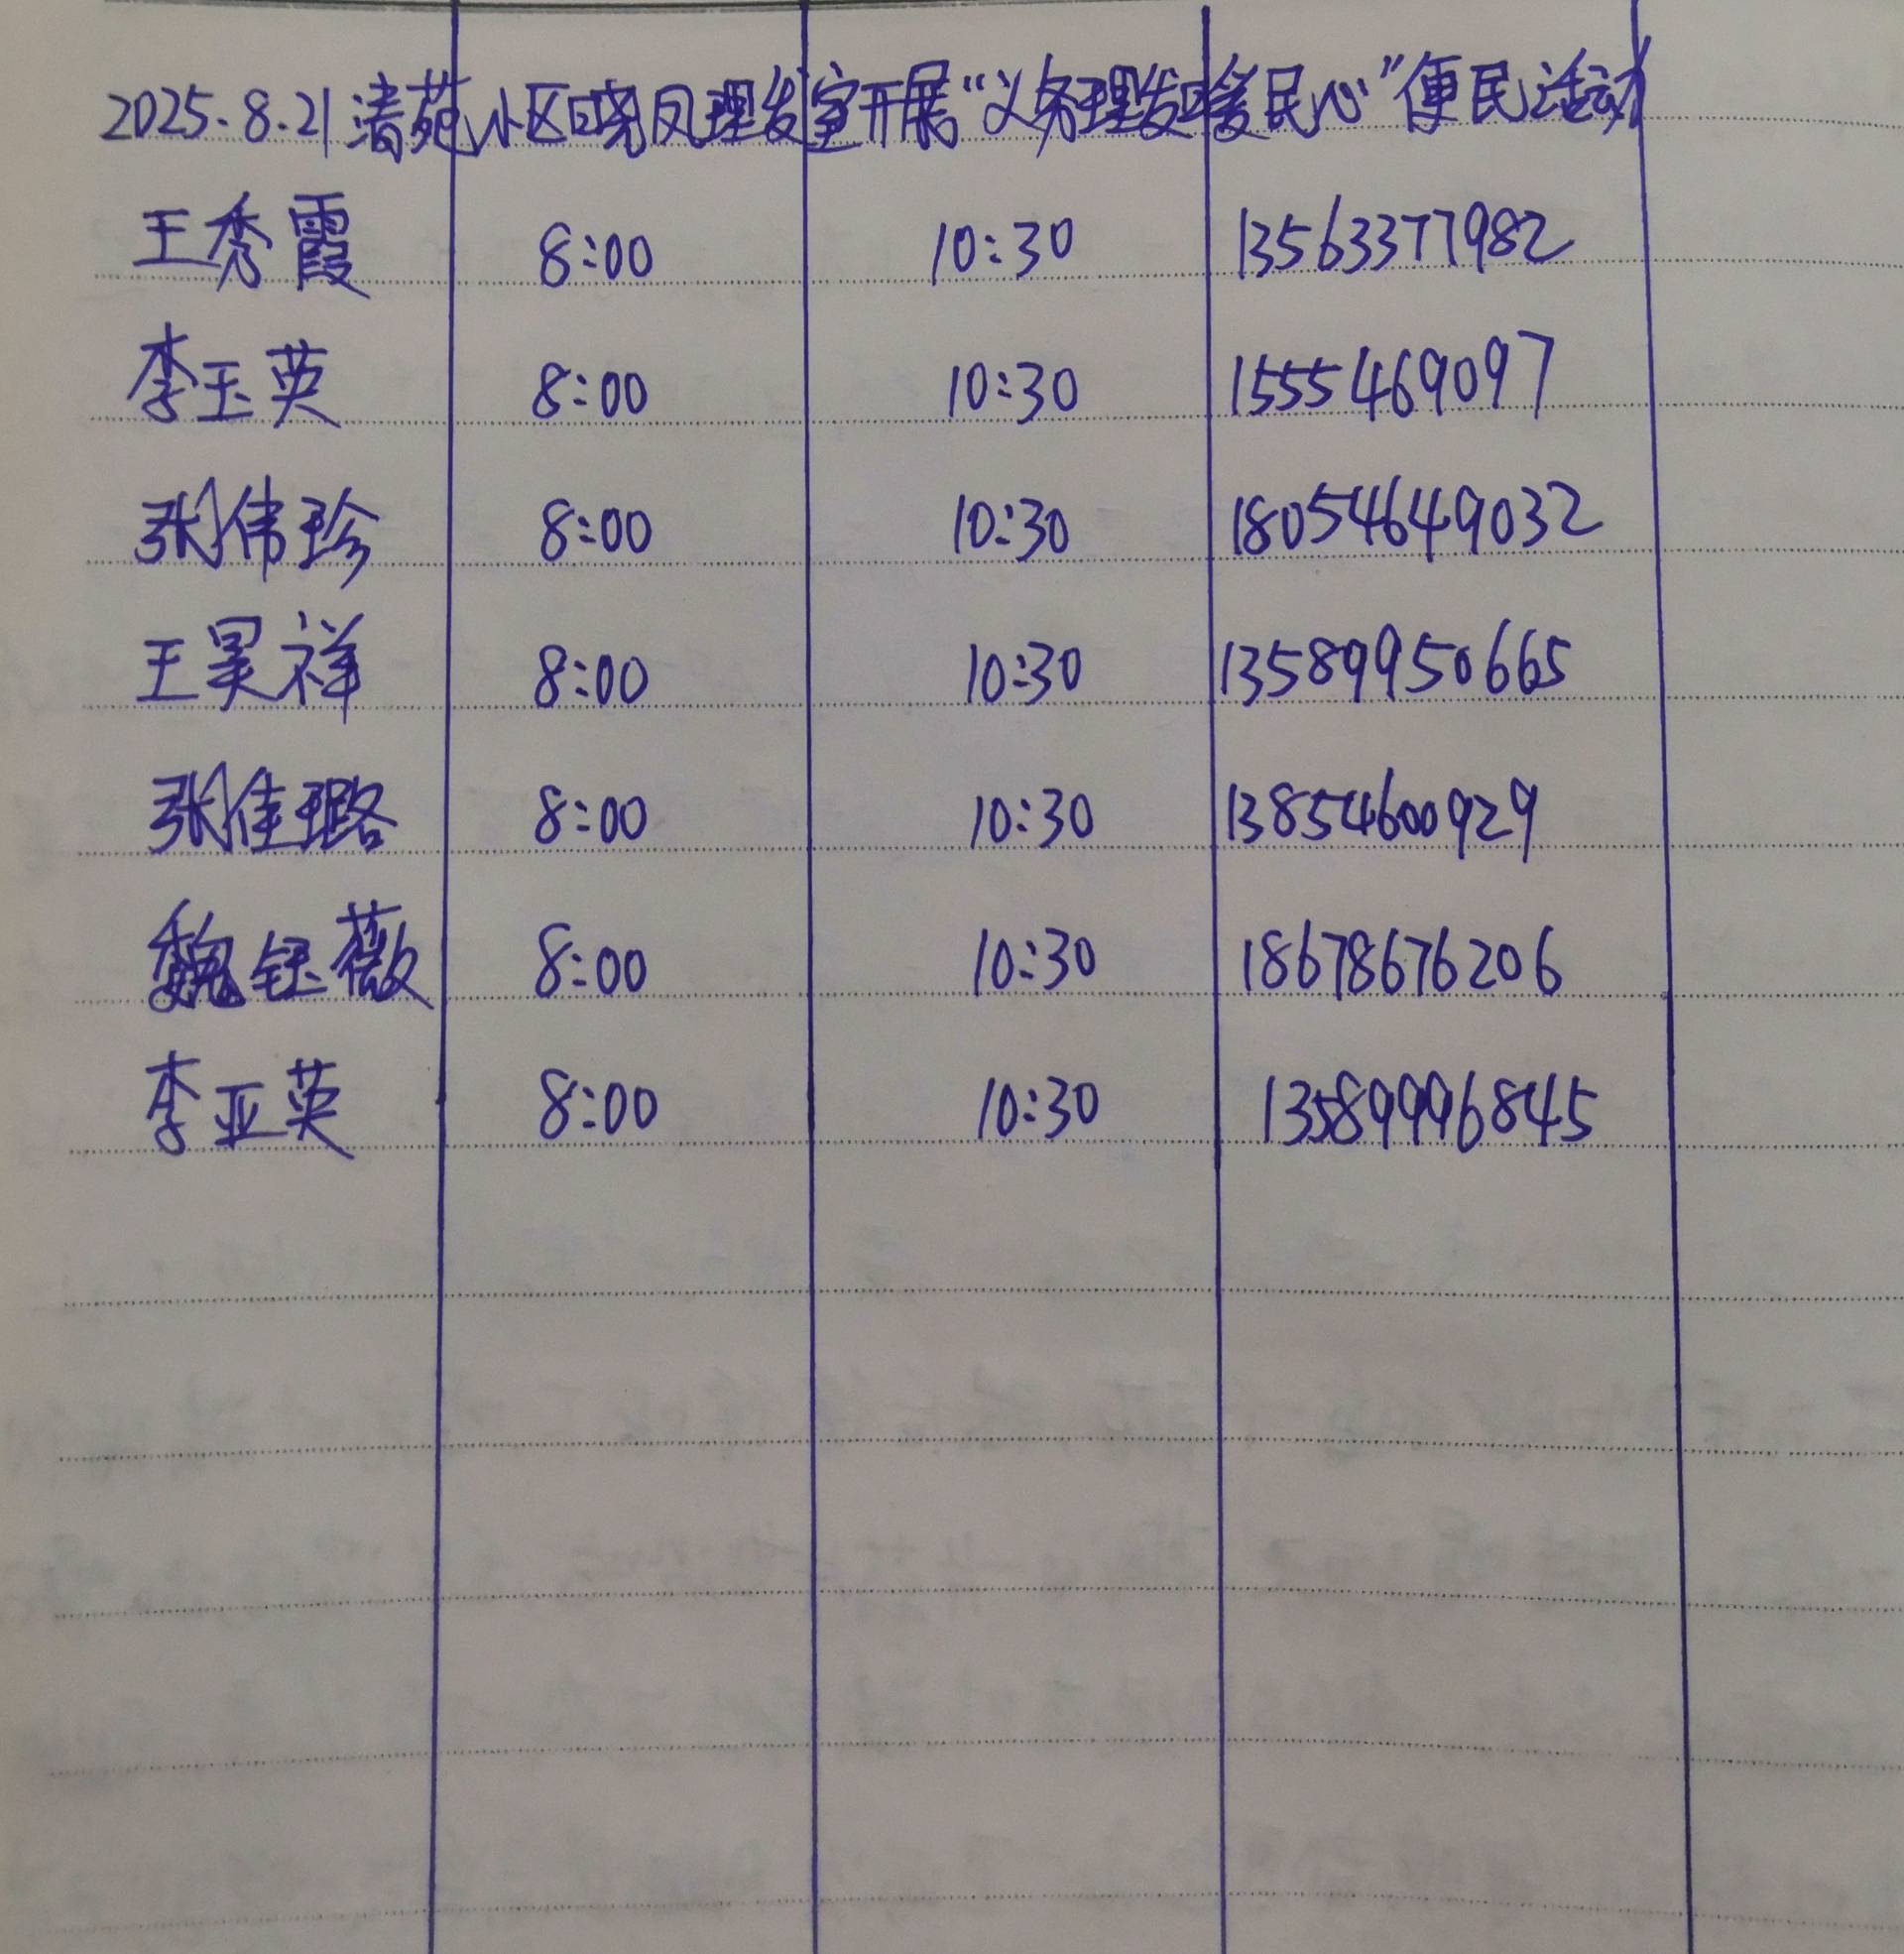 2025.8.21渚苑小区晓凤理发室开展“义务理发暖民心”便民活动
王秀霞 8:00 10:30 13563377982
李玉英 8:00 10:30 1555469097
张伟珍 8:00 10:30 18054649032
王昊祥 8:00 10:30 13589950665
张佳璐 8:00 10:30 13854600929
魏钰薇 8:00 10:30 18678676206
李亚英 8:00 10:30 13589996845